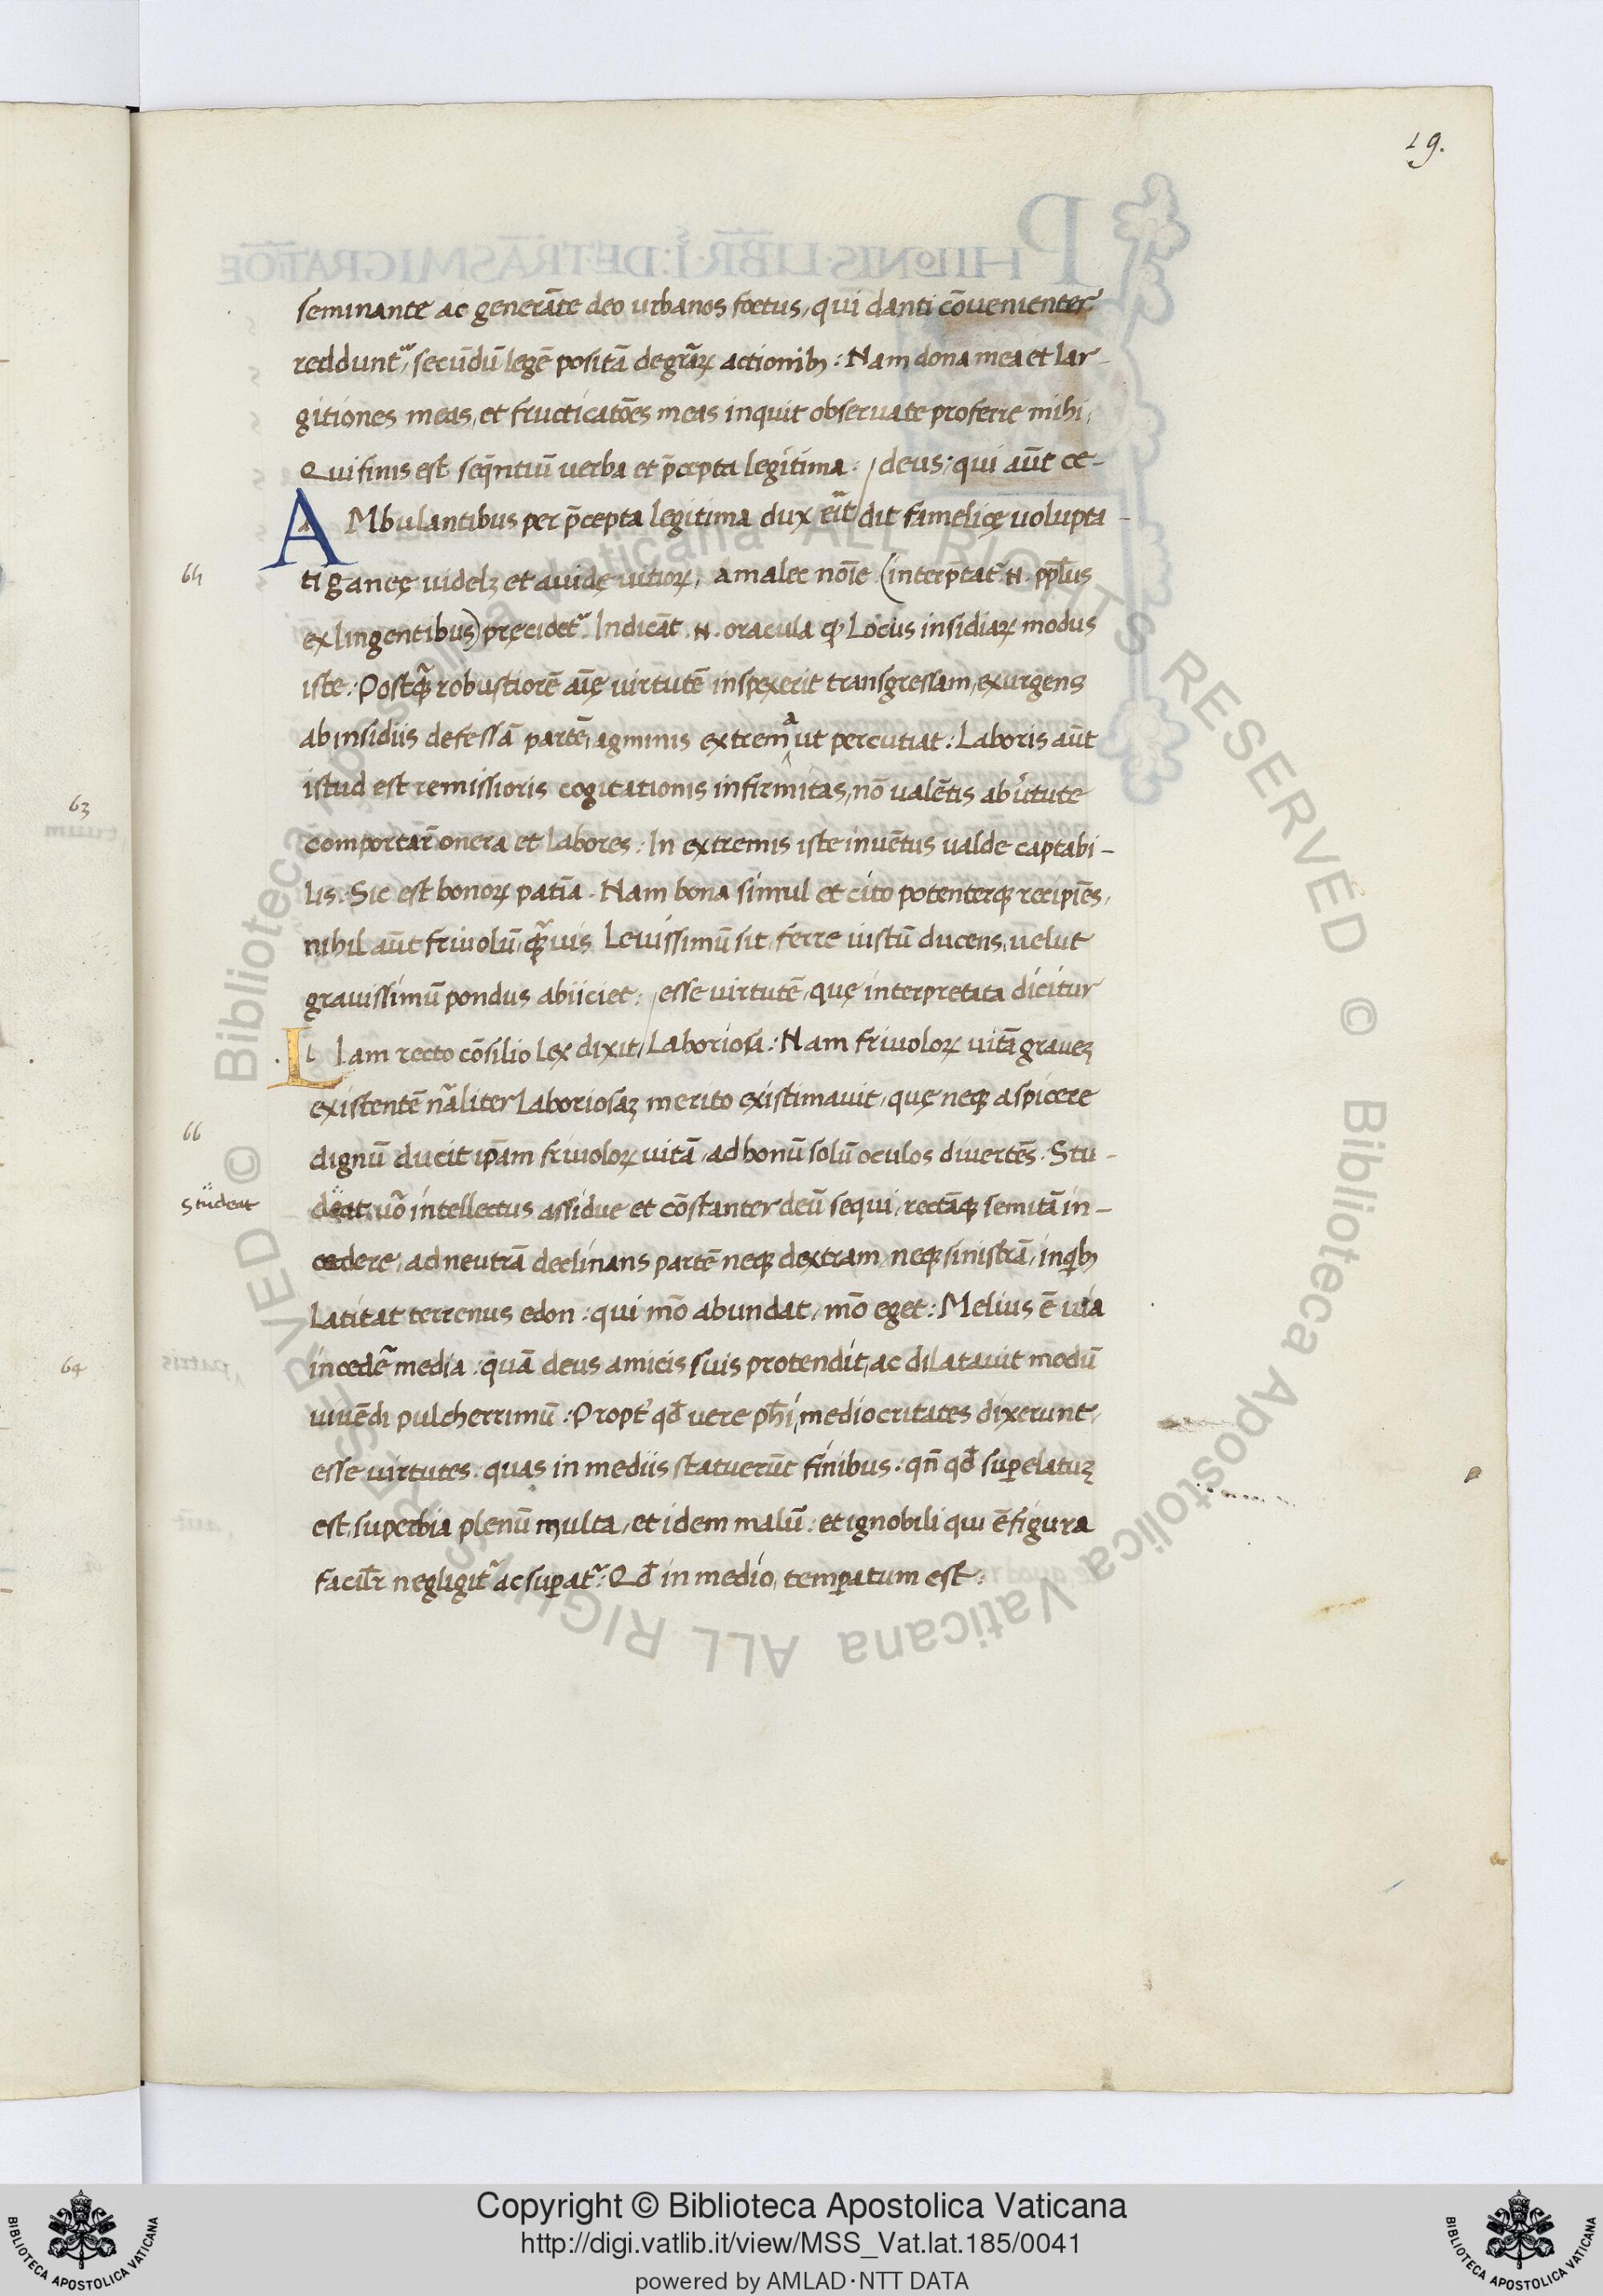 19.
seminante ac generāte deo urbanos foetus, qui danti cōuenienter
reddunt᷑, secūdū legē positā de grāꝝ actionibꝫ: Nam dona mea et lar-
gitiones meas, et fructicatōes meas inquit obseruate proferre mihi,
Qui finis est seq̄ntiū uerba et p̄cepta legitima: / deus: qui aūt ce-
AMbulantibus per p̄cepta legitima dux erit / dit famelicę uolupta-
64
ti ganeę uidelꝫ et auidę uitioꝝ, amalec noīe (interp̄tat᷑ .N. pp̄lus
exlingentibus) pręcidet᷑. Indicāt .N. oracula ꝙ Locus insidiaꝝ modus
iste: Postq̄ robustiorē aīę uirtutē inspexerit transgressam, exurgens
ab insidiis defessā partē, agminis extrema ut percutiat: Laboris aūt
istud est remissioris cogitationis infirmitas, nō ualētis ab ūtute
63
comportar̄ onera et labores: In extremis iste inuētus ualde captabi-
lis: Sic est bonoꝝ patīa. Nam bona simul et cito potenterqꝫ recipiēs,
nihil aūt friuolū, q̄uis Leuissimū sit, ferre iustū ducens, uelut
grauissimū pondus abiiciet: / esse uirtutē, quę interpretata dicitur
LIam recto cōsilio lex dixit / Laboriosa: Nam friuoloꝝ uitā grauēꝫ
existentē nāliter Laboriosaꝫ merito existimauit, quę neqꝫ aspicere
66
dignū ducit ip̄am friuoloꝝ uitā, ad bonū solū oculos diuertēs. Stu-
Student
deat uō intellectus assidue et cōstanter deū sequi, rectāqꝫ semitā in-
cedere, ad neutrā declinans partē neqꝫ dextram, neqꝫ sinistrā, in qibꝫ
Latitat terrenus edon: qui mō abundat, mō eget: Melius ē uia
64
incedēr media: quā deus amicis suis protendit, ac dilatauit modū
uiuēdi pulcherrimū: Propt̄ qđ uere ph̄i, mediocritates dixerunt,
esse uirtutes: quas in mediis statuerūt finibus: qn̄ qđ superelatuꝫ
est, superbia plenū multa, et idem malū: et ignobili qui ē figura
facil̄r negligit᷑ ac superat᷑: Qđ in medio, temperatum est:
Copyright © Biblioteca Apostolica Vaticana
http://digi.vatlib.it/view/MSS_Vat.lat.185/0041
powered by AMLAD·NTT DATA
BIBLIOTECA APOSTOLICA VATICANA
BIBLIOTECA APOSTOLICA VATICANA
© Biblioteca Apostolica Vaticana ALL RIGHTS RESERVED © Biblioteca Apostolica Vaticana ALL RIGHTS RESERVED